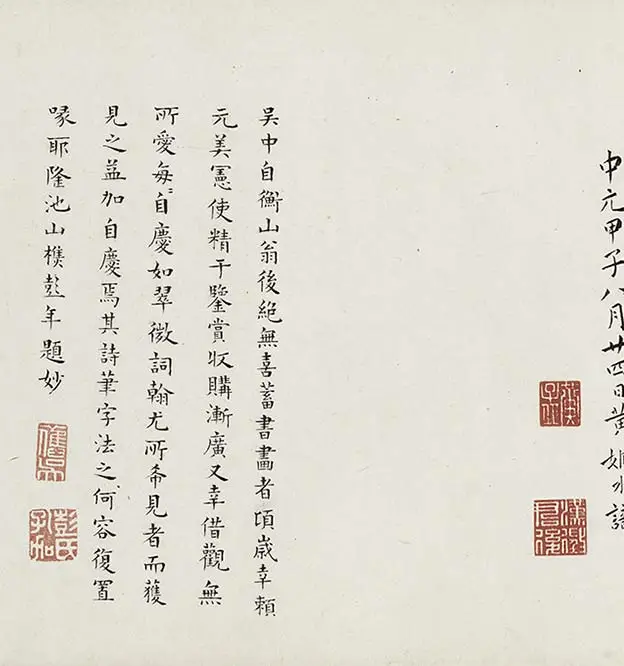 中元甲子八月廿四日黃姬水
吳中自衡山翁後絶無喜蓄書畫者頃歲幸賴
元美憲使精于鑒賞收購漸廣又幸借觀無
所愛每〻自慶如翠微詞翰尤所希見者而獲
見之益加自慶焉其詩筆字法之何容復置
喙耶隆池山樵彭年題妙
彭氏孔加